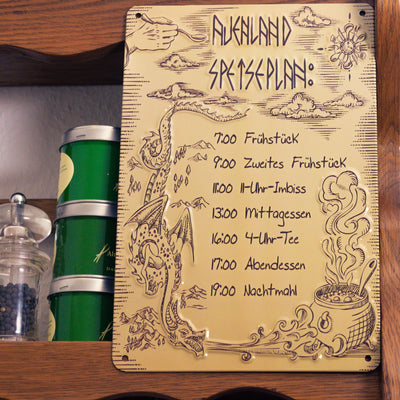 AUENLAND
SPEISEPLAN:
7:00 Frühstück
9:00 Zweites Frühstück
11:00 11-Uhr-Imbiss
13:00 Mittagessen
16:00 4-Uhr-Tee
17:00 Abendessen
19:00 Nachtmahl